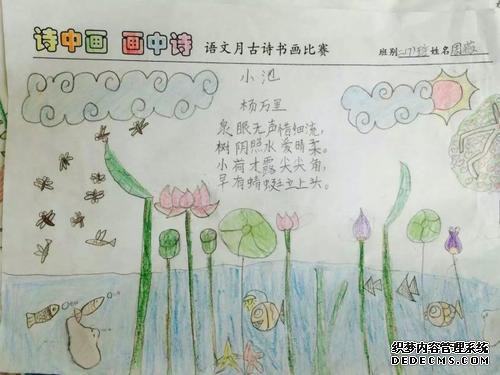 诗中画 画中诗 语文月古诗书画比赛 班别: 姓名:周薇
小池
杨万里
泉眼无声惜细流,
树阴照水爱晴柔。
小荷才露尖尖角,
早有蜻蜓立上头。
织梦内容管理系统
DEDECMS.COM